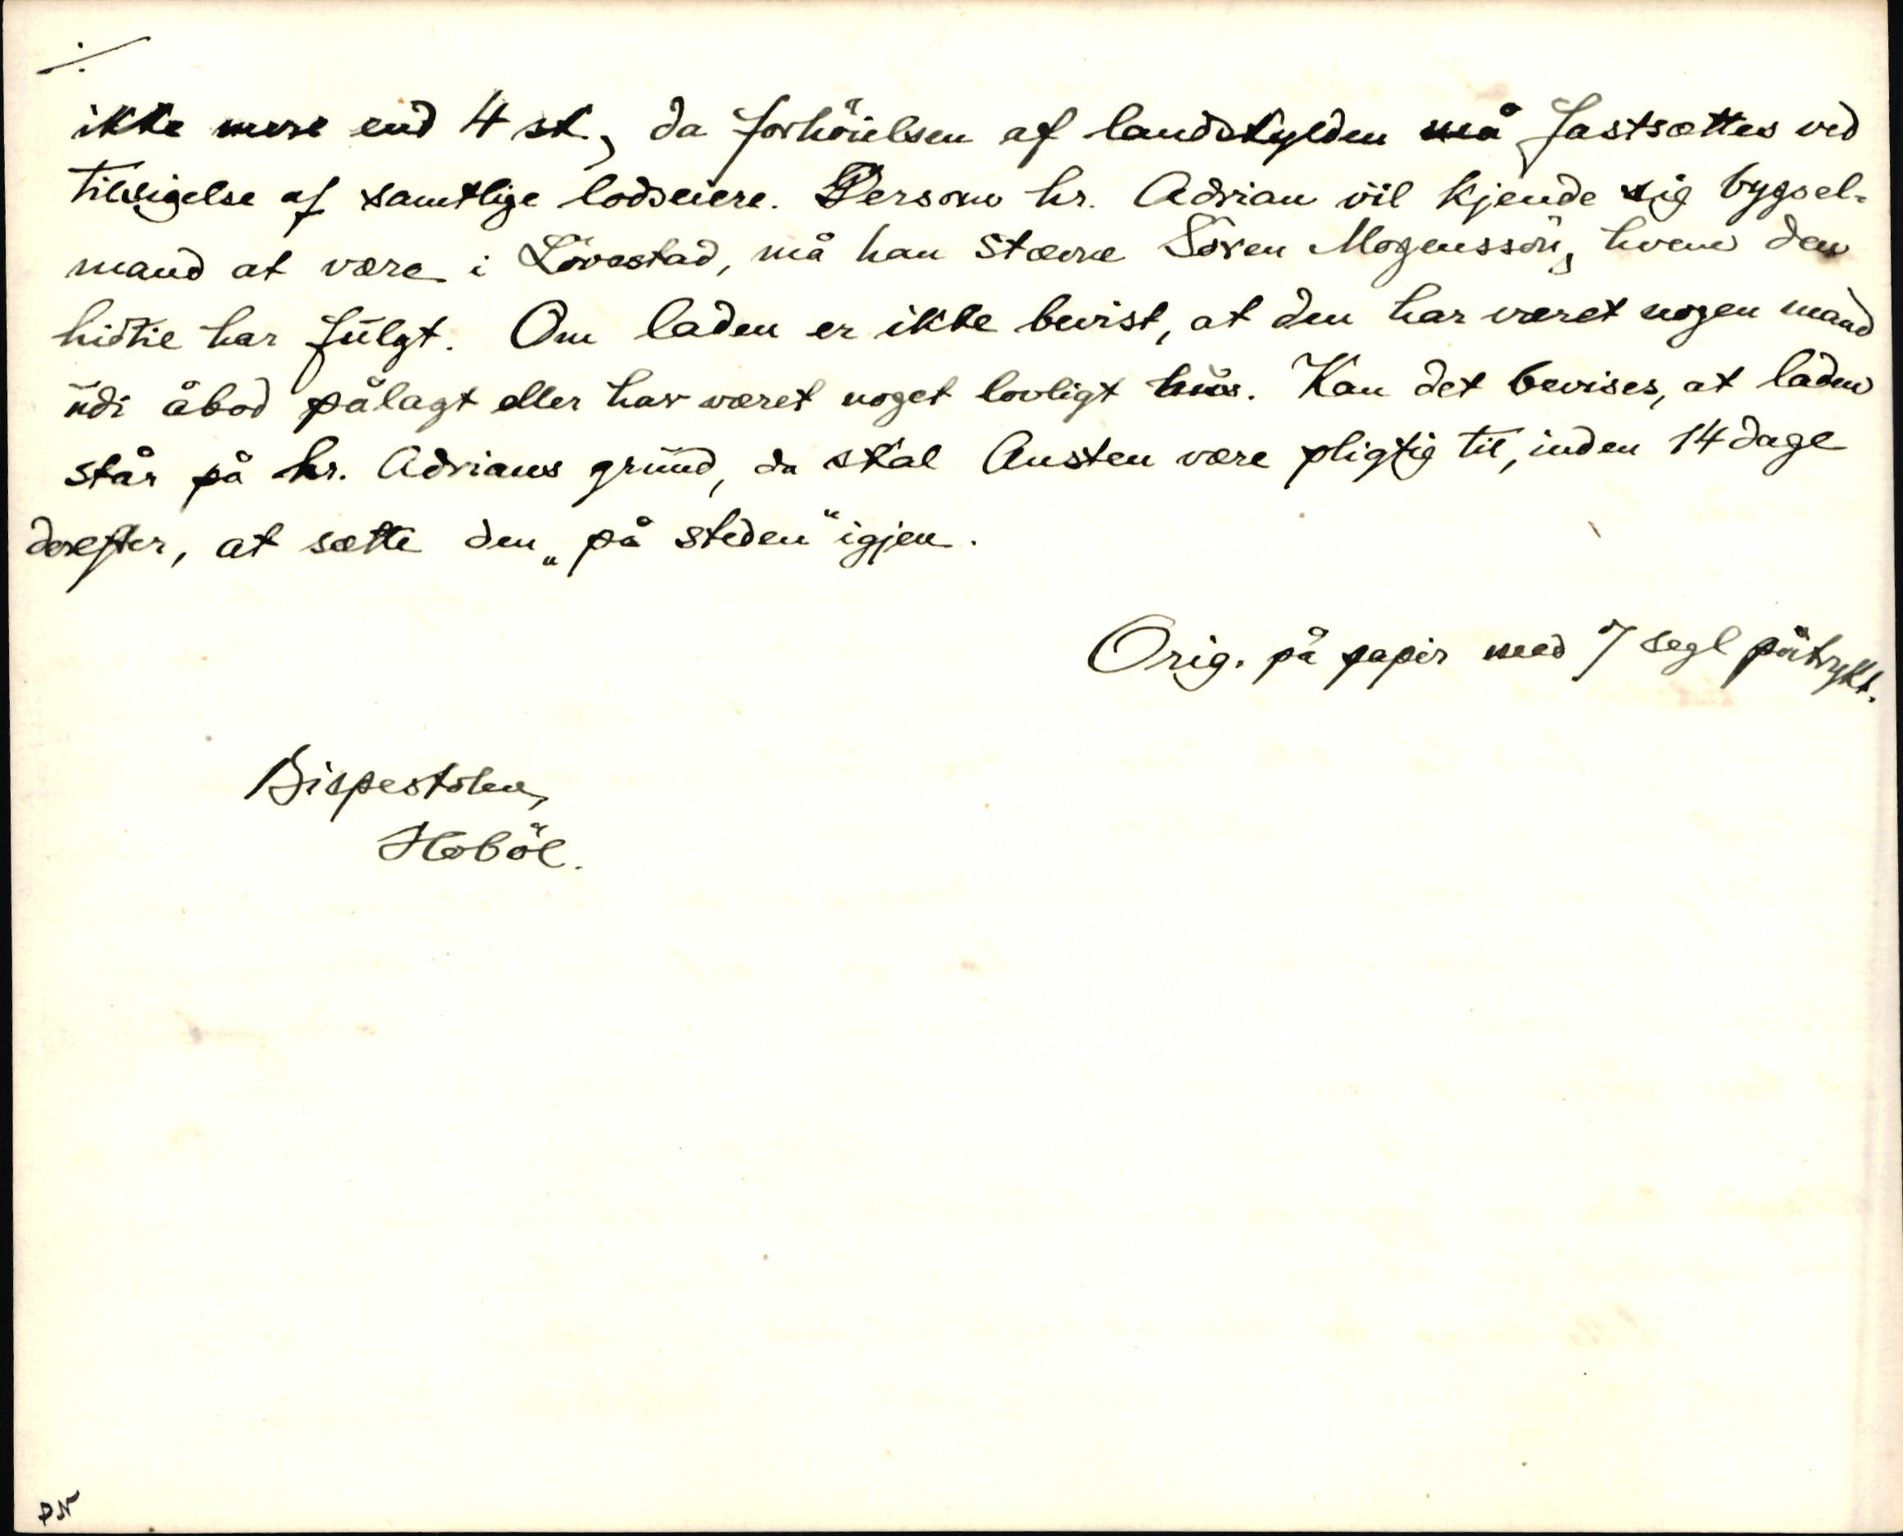 ./.
ikke mere end 4 sk., da forhöielsen af landskylden må fastsættes ved
tilsigelse af samtlige lodseiere. Dersom hr. Adrian vil kjende sig bygsel-
mand at være i Lövestad, må han stævne Sören Mogenssön, hvem den
hidtil har fulgt. Om laden er ikke bevist, at den har været nogen mand
udi åbod pålagt eller har været noget lovligt hus. Kan det bevises, at laden
står på hr. Adrians grund, da skal Austen være pligtig til, inden 14 dage
derefter, at sætte den „på steden“ igjen.
Orig. på papir med 7 segl påtrykt.
Bispestolen,
Hoböl.